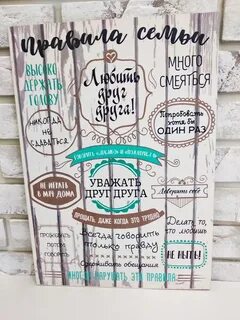 правила семьи
ВЫСОКО
ДЕРЖАТЬ
ГОЛОВУ
Любить
друг
друга!
МНОГО
СМЕЯТЬСЯ
НИКОГДА
НЕ
СДАВАТЬСЯ
Попробовать
хотя бы
ОДИН РАЗ
НЕ ИГРАТЬ
В МЯЧ ДОМА
УВАЖАТЬ
ДРУГ ДРУГА
Доверять себе
ПРОЩАТЬ, ДАЖЕ КОГДА ЭТО ТРУДНО
потом
говорить
Всегда говорить
только правду
Делать то,
что любишь
НЕ НЫТЬ!
Сдерживать обещания
ИНОГДА НАРУШАТЬ ЭТИ ПРАВИЛА